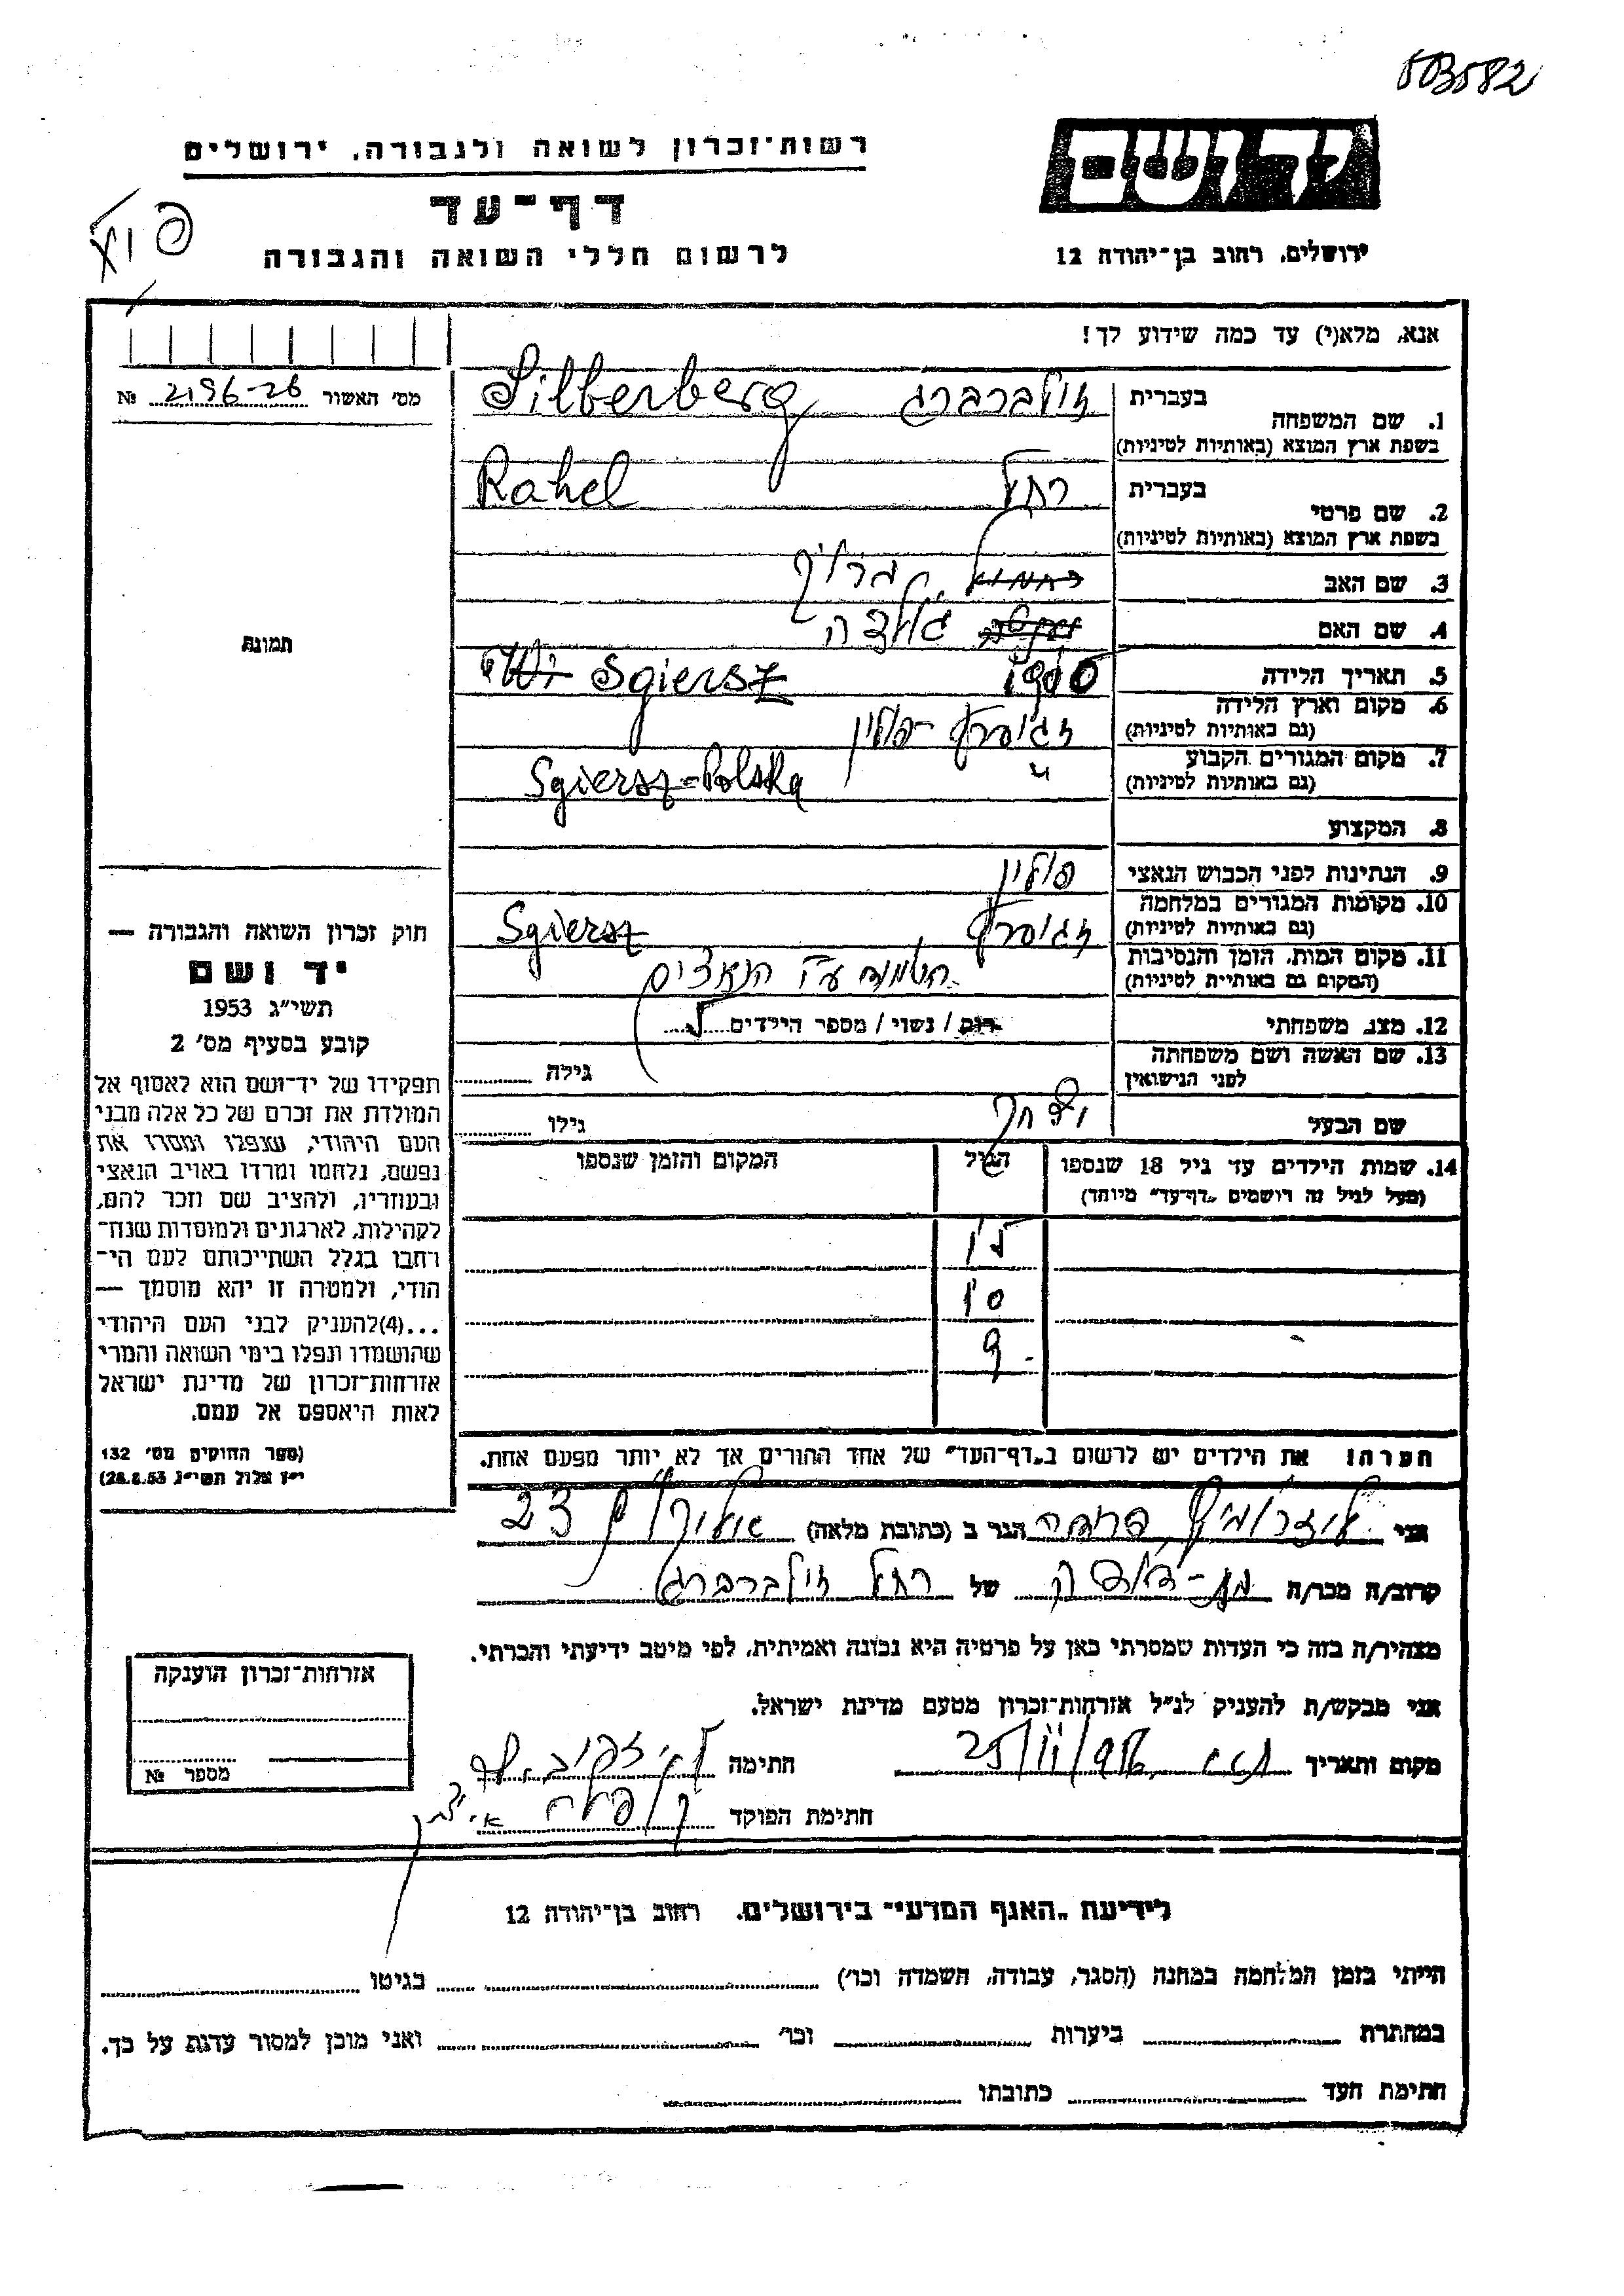 503582
יד ושם
רשות־זכרון לשואה ולגבורה, ירושלים
דף־עד
לרשום חללי השואה והגבורה
ירושלים, רחוב בן־יהודה 12
אנא, מלא(י) עד כמה שידוע לך!
מס׳ האשור 2196-26 №
1. שם המשפחה
בעברית זילברברג Silberberg
בשפת ארץ המוצא (באותיות לטיניות)
2. שם פרטי
בעברית רחל Rahel
בשפת ארץ המוצא (באותיות לטיניות)
3. שם האב
4. שם האם
5. תאריך הלידה 1900 Sgiersz
6. מקום וארץ הלידה
(גם באותיות לטיניות) זגיערז - פולין
7. מקום המגורים הקבוע
(גם באותיות לטיניות) " Sgiersz-Polska
8. המקצוע
9. הנתינות לפני הכבוש הנאצי פולין
10. מקומות המגורים במלחמה
(גם באותיות לטיניות) זגיערז Sgiersz
11. מקום המות, הזמן והנסיבות
(המקום גם באותיית לטיניות) הושמדה ע״י הנאצים
12. מצב משפחתי רוק / נשוי / מספר הילדים
13. שם האשה ושם משפחתה
לפני הנישואין גילה
שם הבעל יצחק גילו
14. שמות הילדים עד גיל 18 שנספו הגיל המקום והזמן שנספו
(מעל לגיל זה רושמים „דף־עד״ מיוחד)
10
9
הערה! את הילדים יש לרשום ב„דף־העד״ של אחד ההורים אך לא יותר מפעם אחת.
תמונה
חוק זכרון השואה והגבורה —
יד ושם
תשי״ג 1953
קובע בסעיף מס׳ 2
תפקידו של יד־ושם הוא לאסוף אל
המולדת את זכרם של כל אלה מבני
העם היהודי, שנפלו ומסרו את
נפשם, נלחמו ומרדו באויב הנאצי
ובעוזריו, ולהציב שם וזכר להם,
לקהילות, לארגונים ולמוסדות שנח־
רחבו בגלל השתייכותם לעם הי־
הודי, ולמטרה זו יהא מוסמך —
...(4)להעניק לבני העם היהודי
שהושמדו ונפלו בימי השואה והמרי
אזרחות־זכרון של מדינת ישראל
לאות היאספם אל עמם.
(ספר החוקים מס׳ 132
י״ז אלול תשי״ג, 28.8.53)
אני הגר ב (כתובת מלאה) 23
קרוב/ה מכר/ה של רחל זילברברג
מצהיר/ה בזה כי העדות שמסרתי כאן על פרטיה היא נכונה ואמיתית, לפי מיטב ידיעתי והכרתי.
אני מבקש/ת להעניק לנ״ל אזרחות־זכרון מטעם מדינת ישראל.
מקום ותאריך חתימה
חתימת הפוקד
אזרחות־זכרון הוענקה
מספר №
לידיעת „האגף המדעי״ בירושלים. רחוב בן־יהודה 12
הייתי בזמן המלחמה במחנה (הסגר, עבודה, השמדה וכו׳) בגיטו
במחתרת ביערות וכו׳ ואני מוכן למסור עדות על כך.
חתימת העד כתובתו